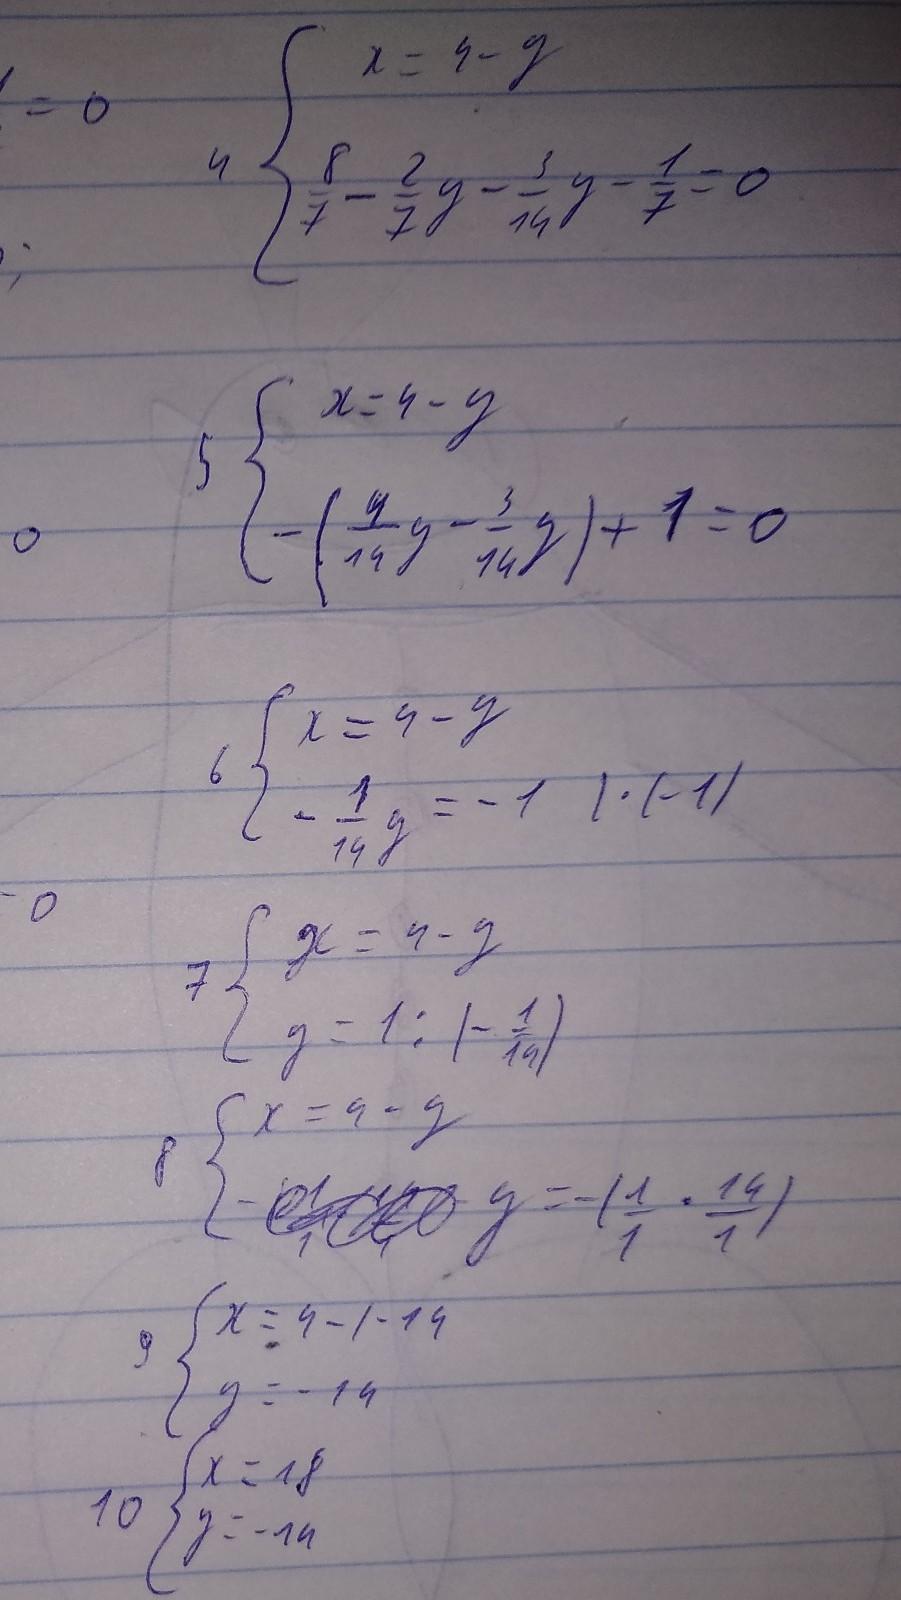 = 0
4 { x = 4 - y
8/7 - 2/7 y - 3/14 y - 1/7 = 0
5 { x = 4 - y
0
-(4/14 y - 3/14 y) + 1 = 0
6 { x = 4 - y
- 1/14 y = -1 | · (-1)
- 0
7 { x = 4 - y
y = 1 : (- 1/14)
8 { x = 4 - y
y = -(1/1 · 14/1)
9 { x = 4 - (-14
y = -14
10 { x = 18
y = -14